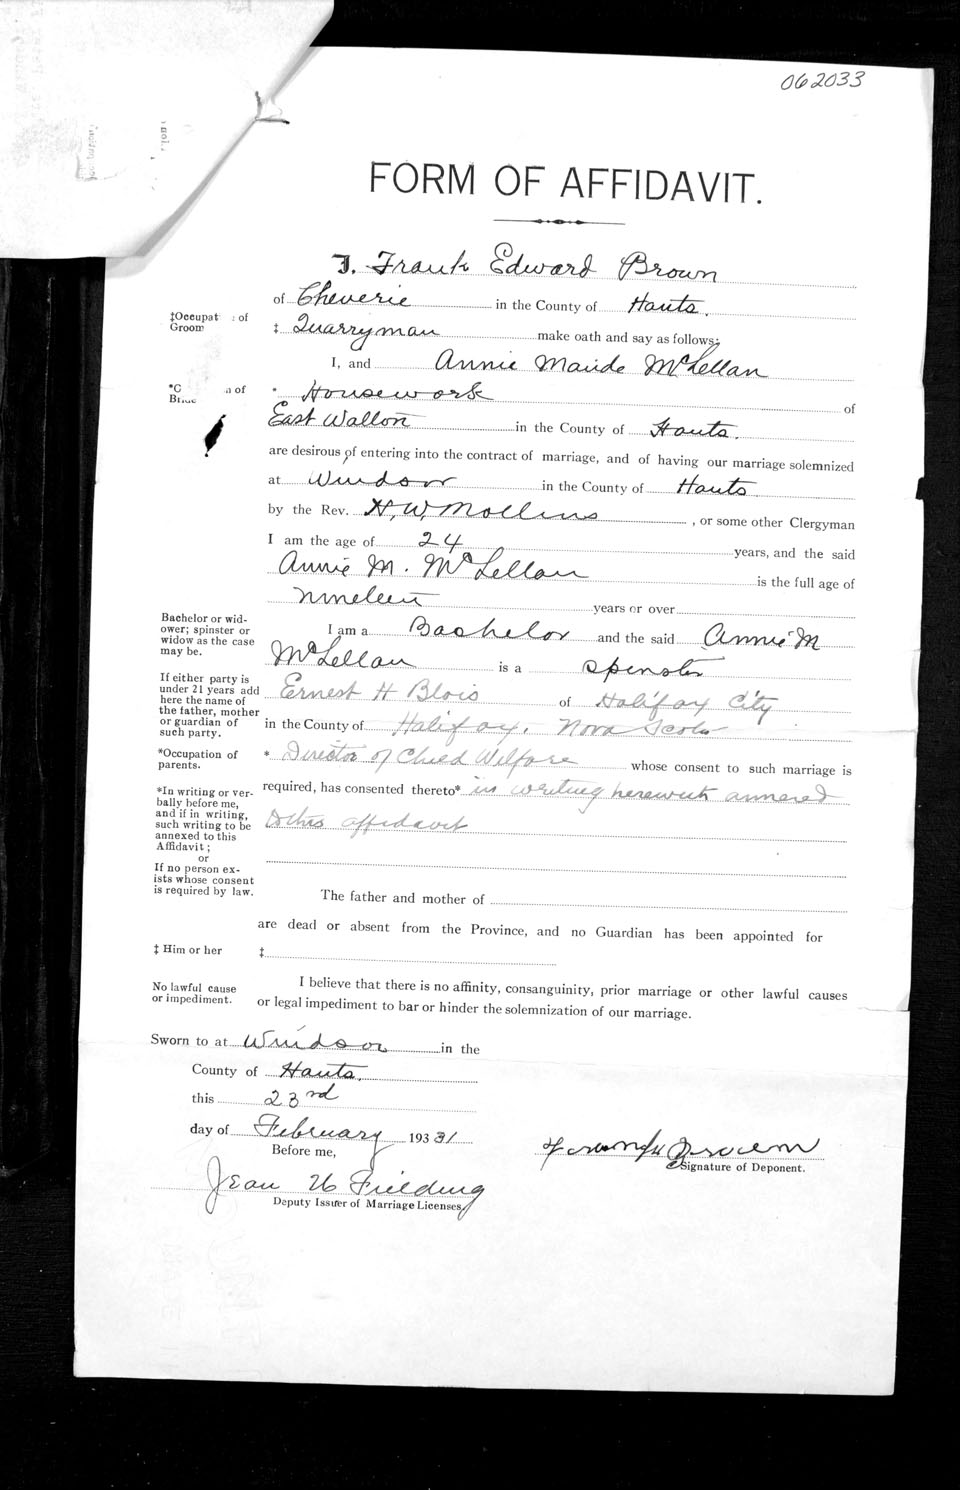 062033
FORM OF AFFIDAVIT.
I, Frank Edward Brown
of Cheverie in the County of Hants.
‡Occupat of
Groom
‡ Quarryman make oath and say as follows:
I, and Annie Maude McLellan
*C n of
* Housework of
East Wallon in the County of Hants.
are desirous of entering into the contract of marriage, and of having our marriage solemnized
at Windsor in the County of Hants
by the Rev. H. W. Mollins, or some other Clergyman
I am the age of 24 years, and the said
Annie M. McLellan is the full age of
nineteen years or over
Bachelor or wid-
ower; spinster or
widow as the case
may be.
I am a Bachelor and the said Annie M
McLellan is a Spinster
If either party is
under 21 years add
here the name of
the father, mother
or guardian of
such party.
Ernest H Blois of Halifax City
in the County of Halifax, Nova Scotia
*Occupation of
parents.
* Director of Child Welfare whose consent to such marriage is
*In writing or ver-
bally before me,
and if in writing,
such writing to be
annexed to this
Affidavit;
or
If no person ex-
ists whose consent
is required by law.
required, has consented thereto* in writing herewith annexed
to this affidavit
The father and mother of
are dead or absent from the Province, and no Guardian has been appointed for
‡ Him or her
‡
No lawful cause
or impediment.
I believe that there is no affinity, consanguinity, prior marriage or other lawful causes
or legal impediment to bar or hinder the solemnization of our marriage.
Sworn to at Windsor in the
County of Hants.
this 23rd
day of February 193 31
Before me,
Jean Fielding
Deputy Issuer of Marriage Licenses
Frank Brown
Signature of Deponent.